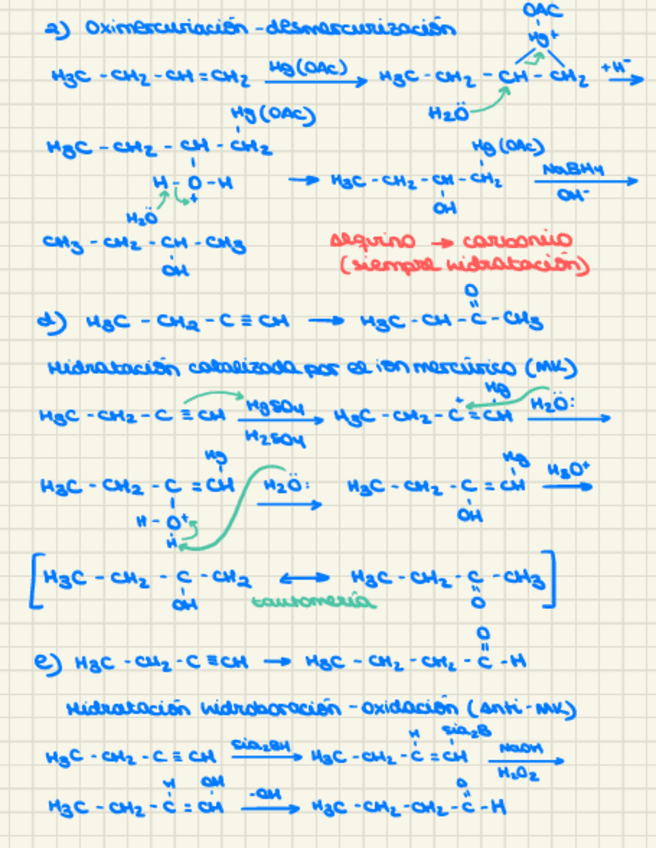 OAC
2) Oximercuriación - desmercurización
Hg+
H3C - CH2 - CH = CH2 Hg(OAC) H3C - CH2 - CH - CH2 +H-
H2Ö
Hg(OAC)
H3C - CH2 - CH - CH2 Hg(OAC)
H - O - H → H3C - CH2 - CH - CH2 NaBH4
+ OH OH-
H2Ö
CH3 - CH2 - CH - CH3 Alquino → carbonilo
OH (siempre hidratación)
O
d) H3C - CH2 - C ≡ CH → H3C - CH - C - CH3
Hidratación catalizada por el ion mercúrico (MK)
Hg
H3C - CH2 - C ≡ CH HgSO4 H3C - CH2 - C+ = CH H2Ö:
H2SO4
Hg Hg
H3C - CH2 - C = CH H2Ö: H3C - CH2 - C = CH H3O+
H - O+ OH
H
[H3C - CH2 - C - CH2 ↔ H3C - CH2 - C - CH3]
OH tautomería O
O
e) H3C - CH2 - C ≡ CH → H3C - CH2 - CH2 - C - H
Hidratación hidroboración - oxidación (Anti-MK)
H sia2B
H3C - CH2 - C ≡ CH sia2BH H3C - CH2 - C = CH NaOH
H2O2
H OH O
H3C - CH2 - C = CH -OH H3C - CH2 - CH2 - C - H